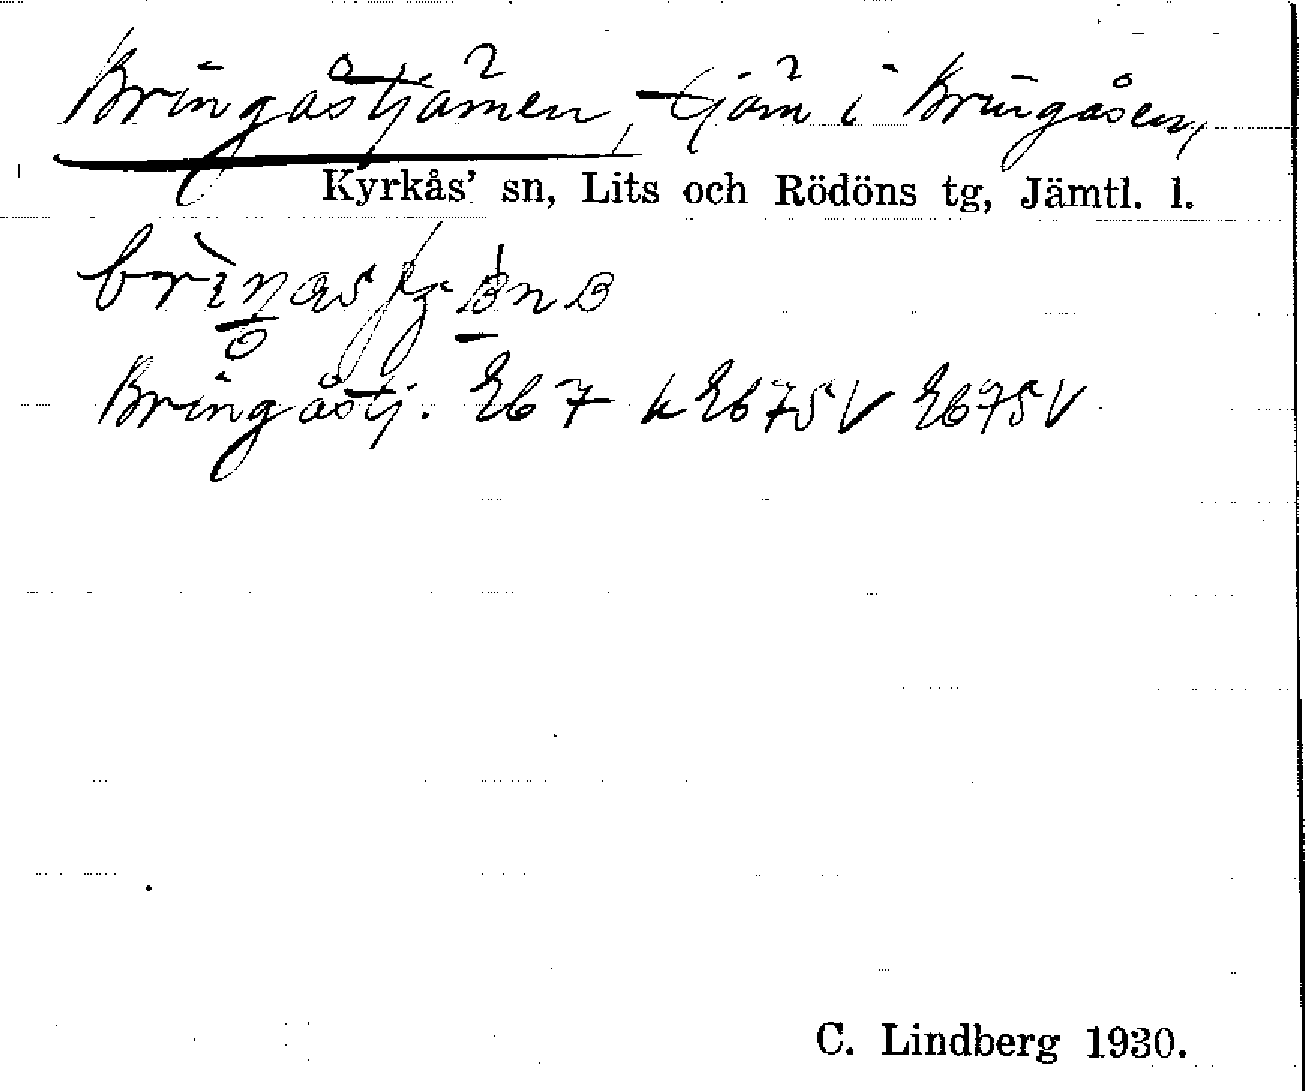 Bringåstjärnen, tjärn i Bringåsen,
Kyrkås' sn, Lits och Rödöns tg, Jämtl. l.
Bringåstj. Eb 7 k Eb75V Eb75V
C. Lindberg 1930.